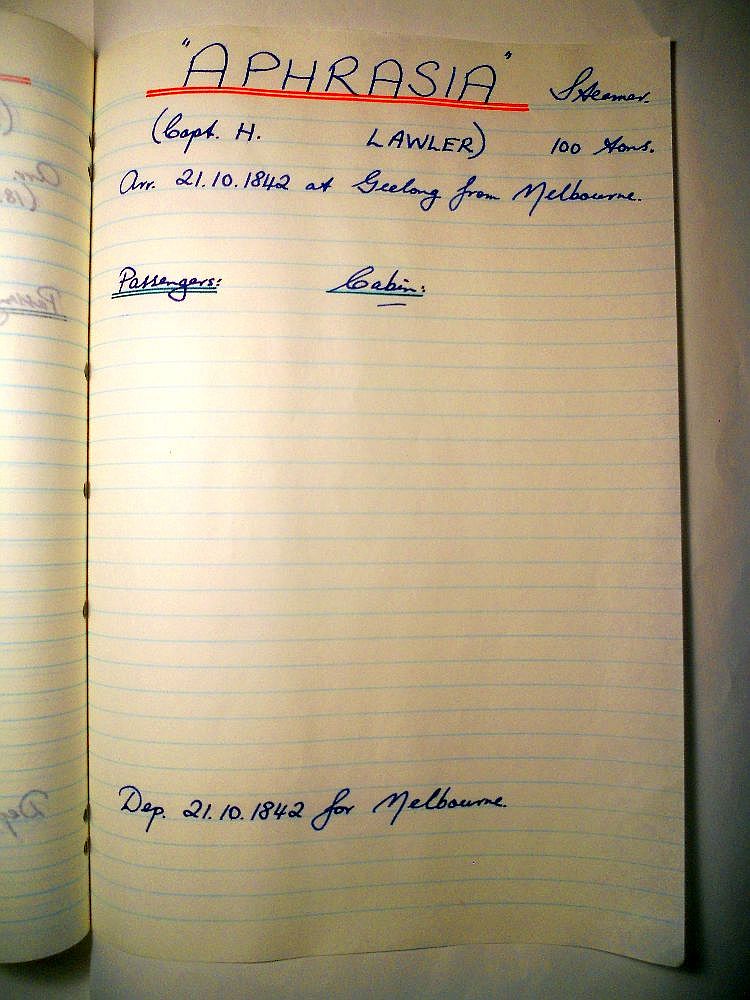 "APHRASIA" Steamer.
(Capt. H. LAWLER) 100 tons.
Arr. 21.10.1842 at Geelong from Melbourne.
Passengers: Cabin:
Dep. 21.10.1842 for Melbourne.